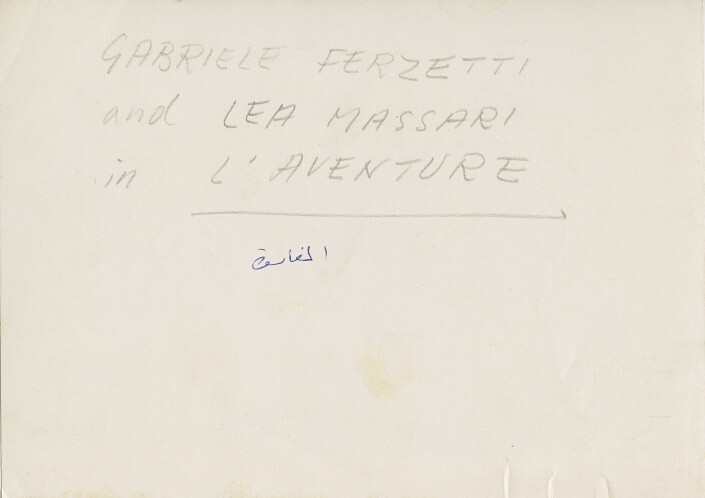 GABRIELE FERZETTI
and LEA MASSARI
in L'AVENTURE
المغامرة